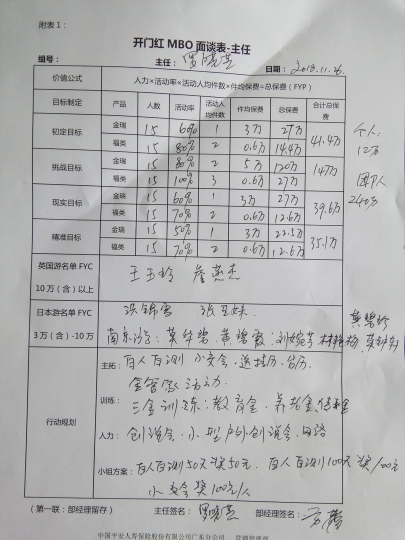 附表1:
开门红 MBO 面谈表-主任
组号: 主任: 日期: 2013.11.26
价值公式 人力×活动率×活动人均件数×件均保费=总保费(FYP)
目标制定 产品 人数 活动率 活动人均件数 件均保费 总保费 合计总保费
初定目标 金瑞 15 60% 1 3万 27万 41.4万
福类 15 80% 2 0.6万 14.4万
挑战目标 金瑞 15 80% 2 5万 120万 147万
福类 15 100% 3 0.6万 27万
现实目标 金瑞 15 60% 1 3万 27万 39.6万
福类 15 70% 2 0.6万 12.6万
精准目标 金瑞 15 50% 1 3万 22.5万 35.1万
福类 15 70% 2 0.6万 12.6万
个人:
12万
团队
240万
英国游名单 FYC
10 万(含)以上
王玉玲
日本游名单 FYC
3 万(含)-10 万
洪锦雪 张玉妹
南京游: 莫华碧 黄碧霞
行动规划
主拓: 百人百测 小交会、送挂历、台历
金管家活动
训练: 三金训练: 教育金、养老金
人力: 创说会、小型户外创说会、网络
小组方案: 百人百测50天奖50元、百人百测100天奖100元
小交会奖100元/人
(第一联:部经理留存) 主任签名: 部经理签名:
中国平安人寿保险股份有限公司广东分公司 营销管理部